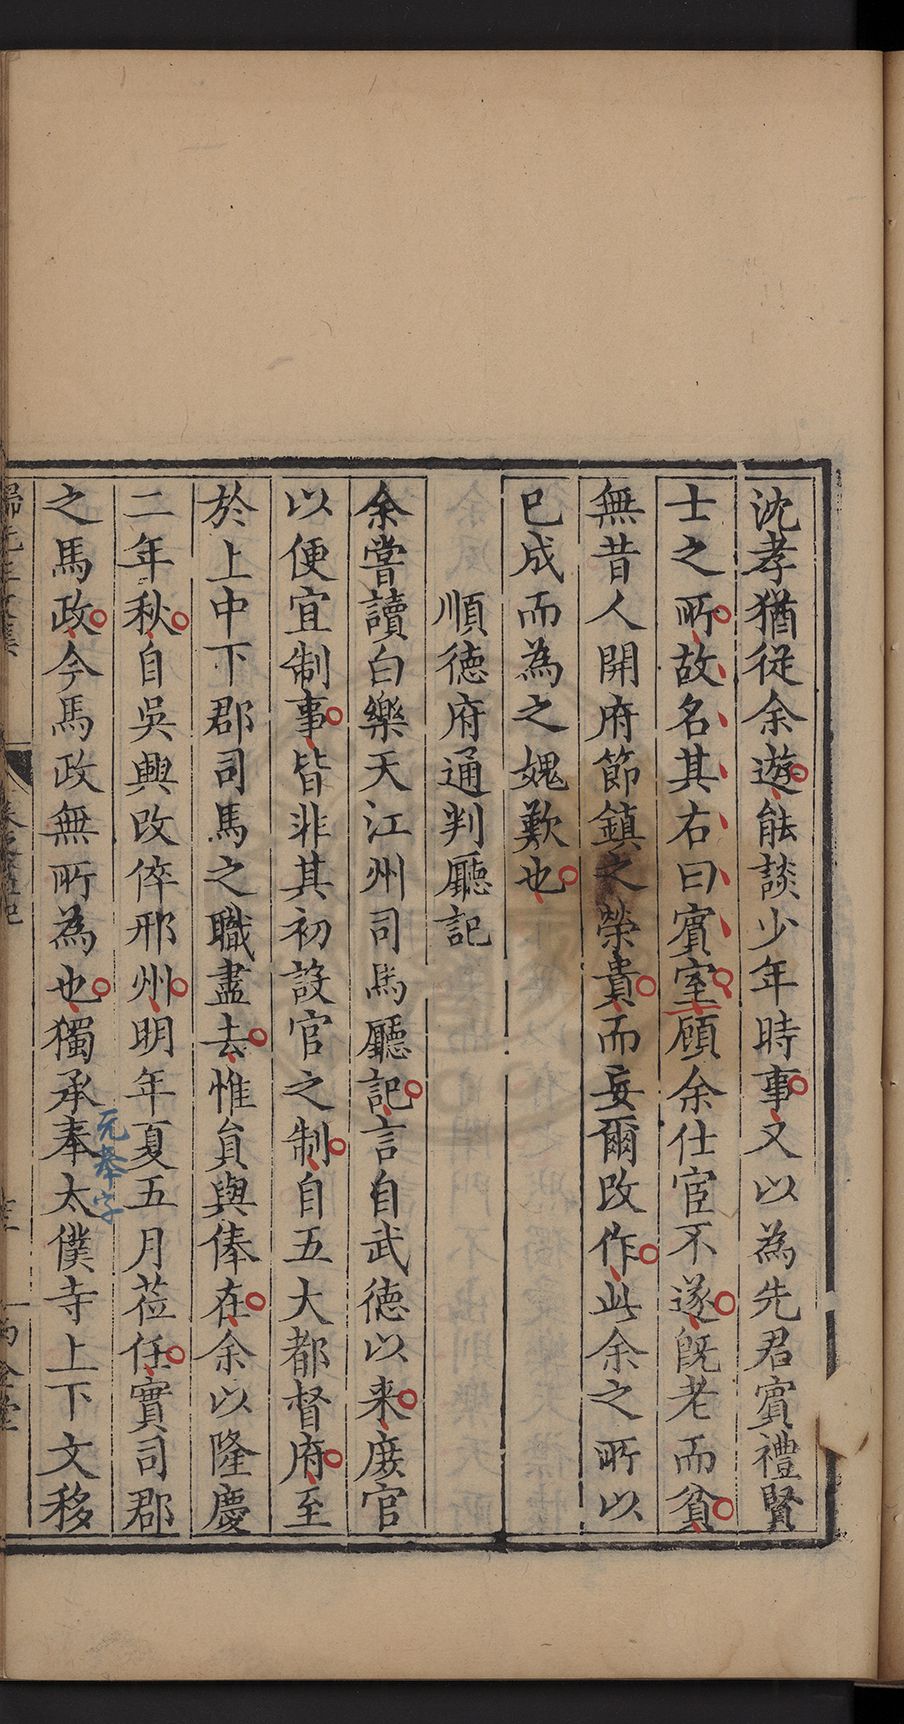 沈孝猶從余遊能談少年時事又以為先君賓禮賢
士之所故名其右曰賓室顧余仕宦不遂旣老而貧
無昔人開府節鎮之榮貴而妄爾改作此余之所以
已成而為之媿歎也
順德府通判廳記
余嘗讀白樂天江州司馬廳記言自武德以来庶官
以便宜制事皆非其初設官之制自五大都督府至
於上中下郡司馬之職盡去惟貟與俸在余以隆慶
二年秋自吳興改倅邢州明年夏五月莅任實司郡
之馬政今馬政無所為也獨承奉太僕寺上下文移
元舉字